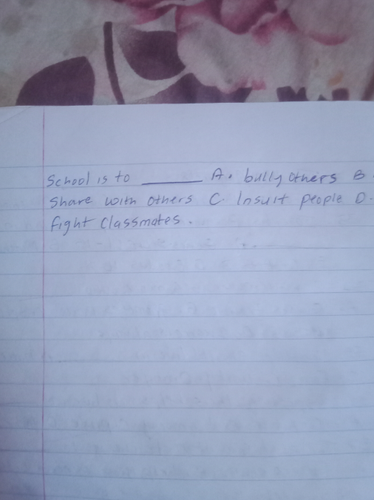 School is to ______ A. bully others B.
Share with others C. Insult people D.
fight classmates.